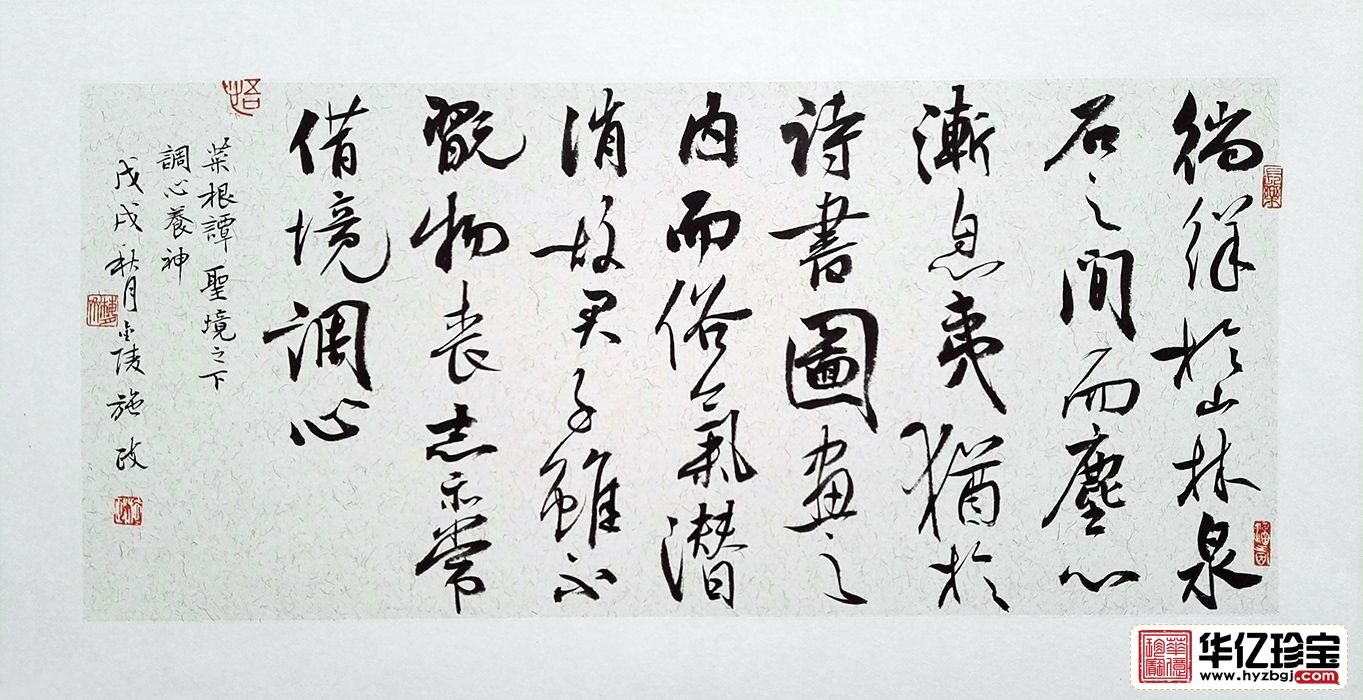 徜徉於山林泉
石之間而塵心
漸息夷猶於
詩書圖畫之
内而俗氣潜
消故君子雖不
翫物丧志亦常
借境調心
菜根譚聖境之下
調心養神
戊戌秋月金陵施政
長樂
华亿珍宝
www.hyzbgj.com